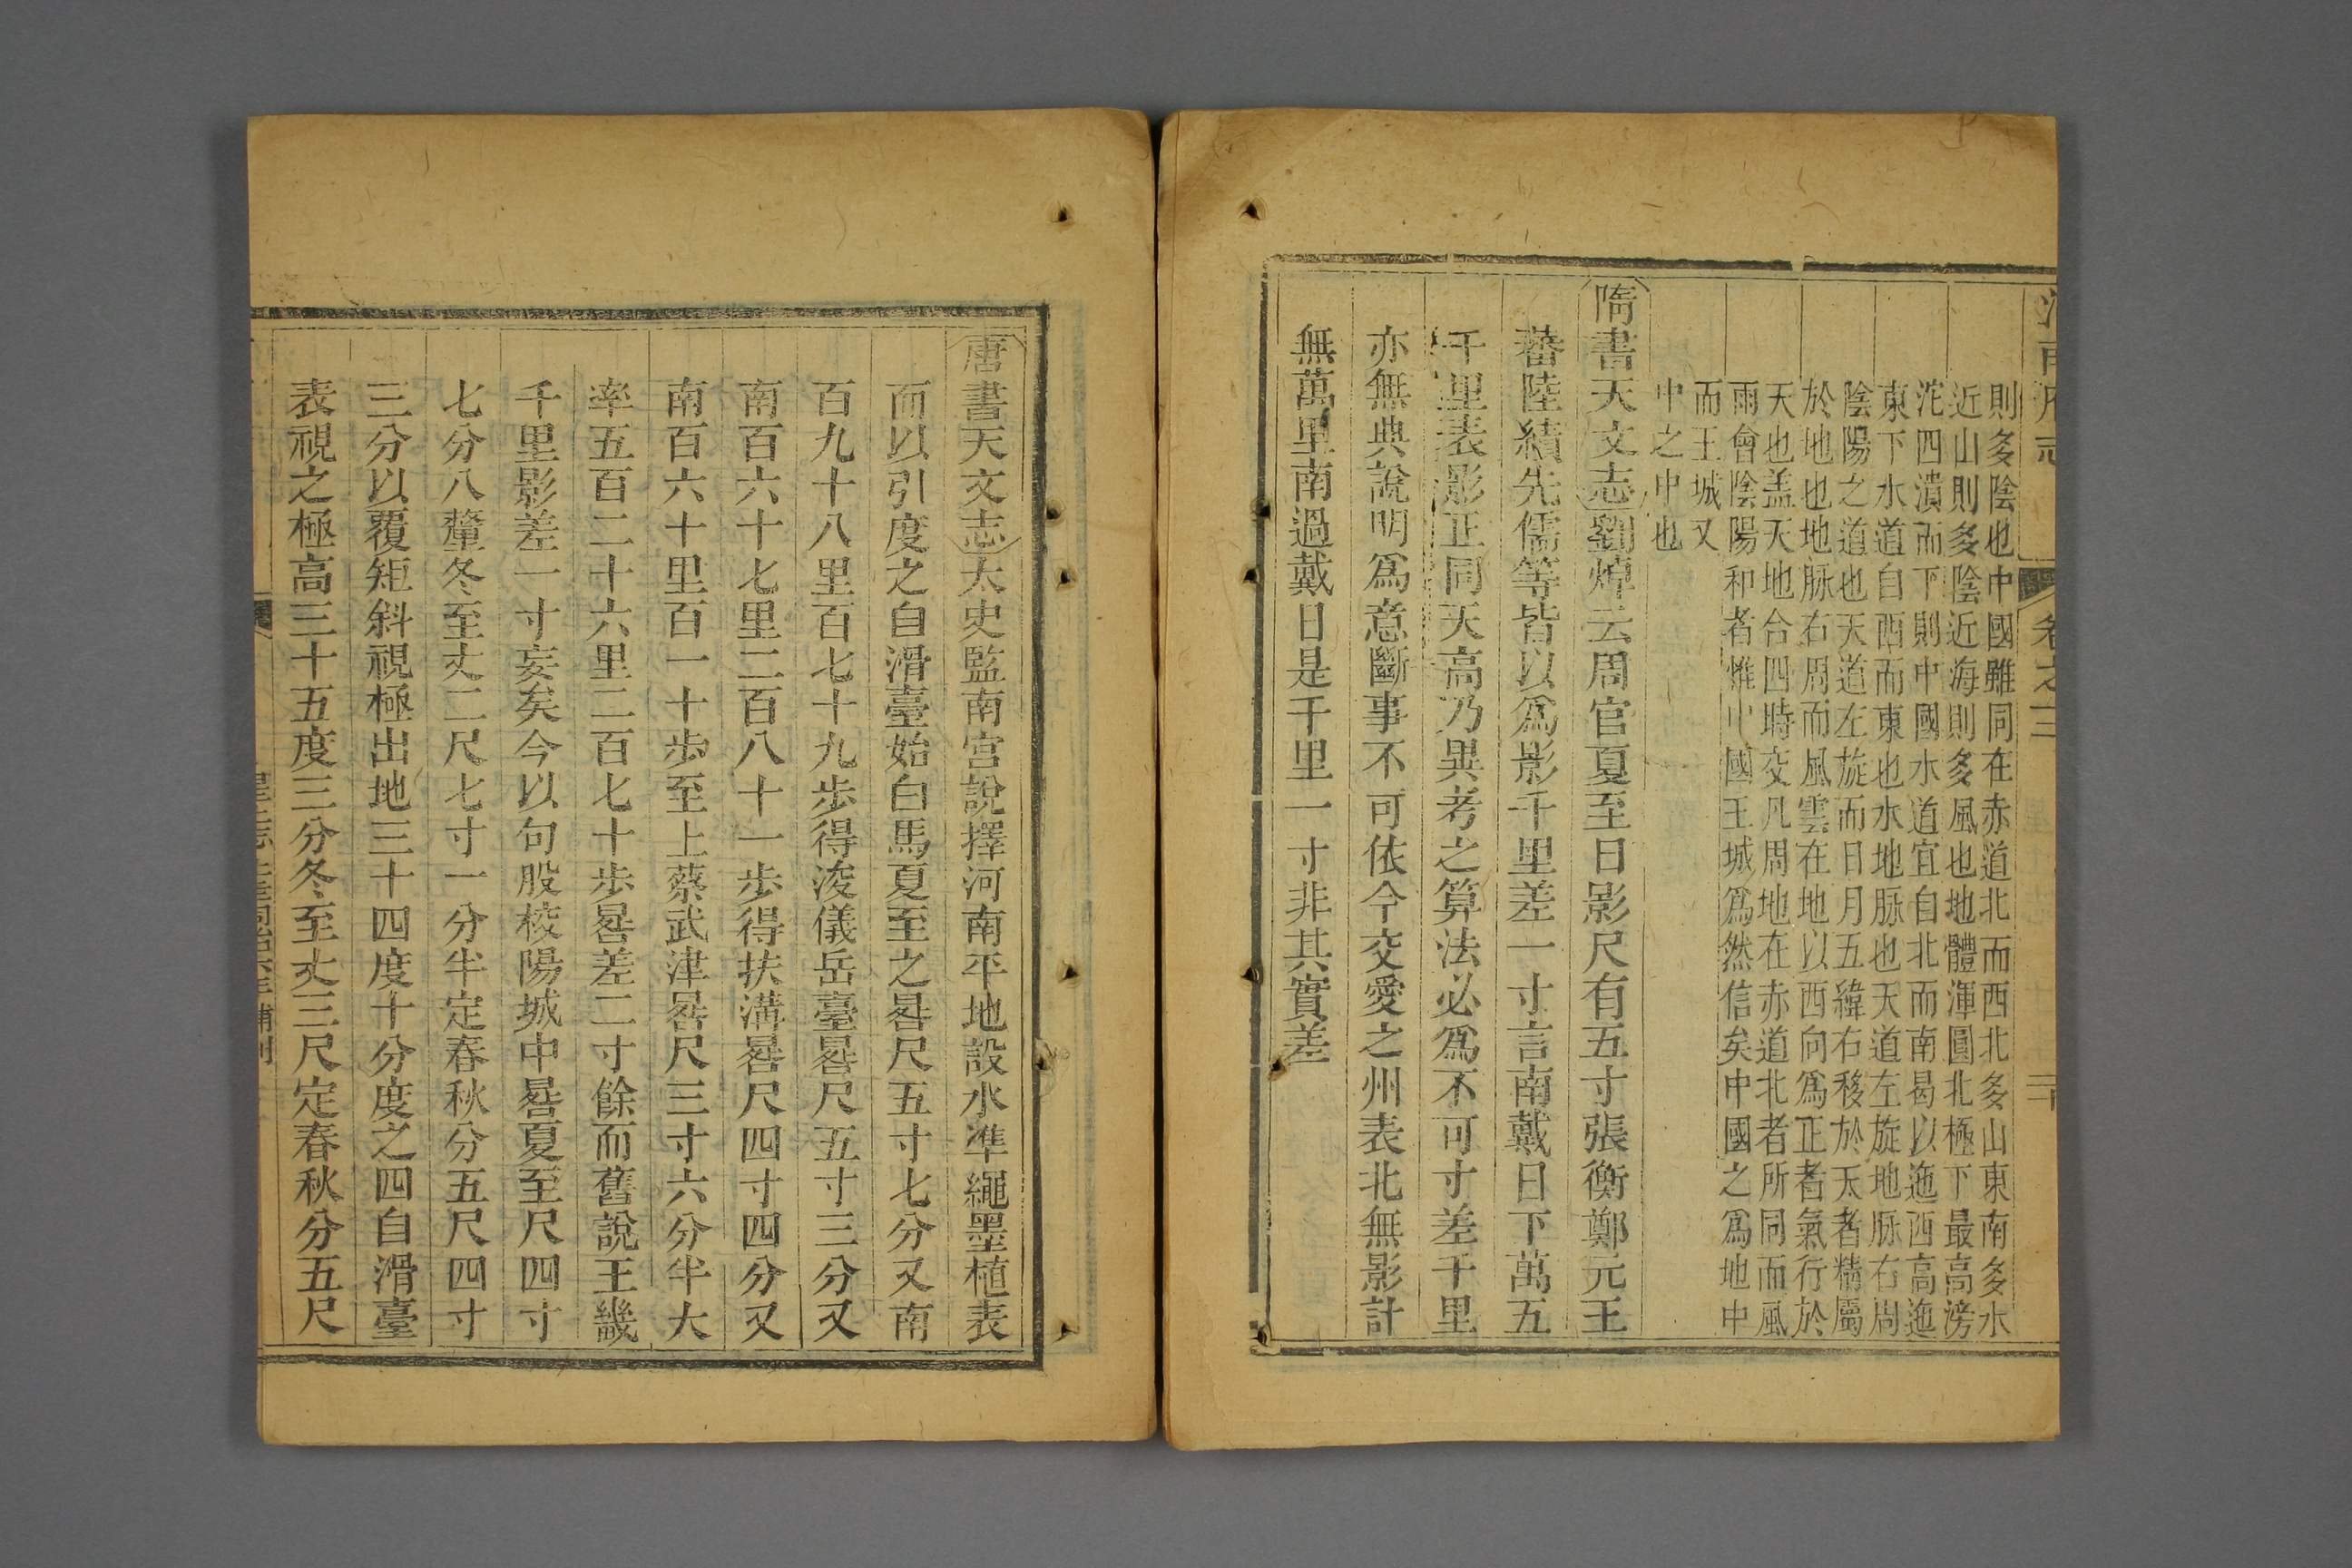 河南府志 卷之三 二十
則多陰也中國雖同在赤道北而西北多山東南多水
近山則多陰近海則多風也地體渾圓北極下最高滂
沱四潰而下則中國水道宜自北而南曷以迤西高迤
東下水道自西而東也水地脉也天道左旋地脉右周
陰陽之道也天道左旋而日月五緯右移於天者精屬
於地也地脉右周而風雲在地以西向爲正者氣行於
天也盖天地合四時交凡周地在赤道北者所同而風
雨會陰陽和者惟中國王城爲然信矣中國之爲地中
而王城又
中之中也
隋書天文志劉焯云周官夏至日影尺有五寸張衡鄭元王
蕃陸績先儒等皆以爲影千里差一寸言南戴日下萬五
千里表影正同天高乃異考之算法必爲不可寸差千里
亦無典說明爲意斷事不可依今交愛之州表北無影計
無萬里南過戴日是千里一寸非其實差
唐書天文志太史監南宮說擇河南平地設水準繩墨植表
而以引度之自滑臺始白馬夏至之晷尺五寸七分又南
百九十八里百七十九步得浚儀岳臺晷尺五寸三分又
南百六十七里二百八十一步得扶溝晷尺四寸四分又
南百六十里百一十步至上蔡武津晷尺三寸六分半大
率五百二十六里二百七十步晷差二寸餘而舊說王畿
千里影差一寸妄矣今以句股校陽城中晷夏至尺四寸
七分八釐冬至丈二尺七寸一分半定春秋分五尺四寸
三分以覆矩斜視極出地三十四度十分度之四自滑臺
表視之極高三十五度三分冬至丈三尺定春秋分五尺